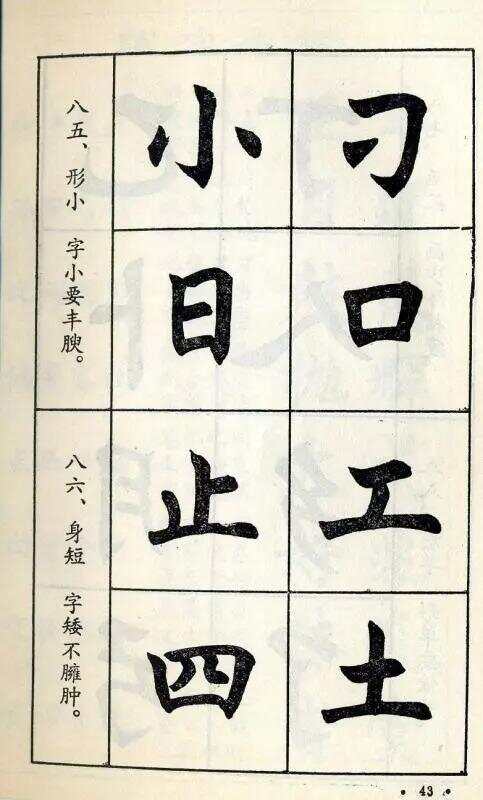 刁口工土
小日止四
八五、形小 字小要丰腴。
八六、身短 字矮不臃肿。
43